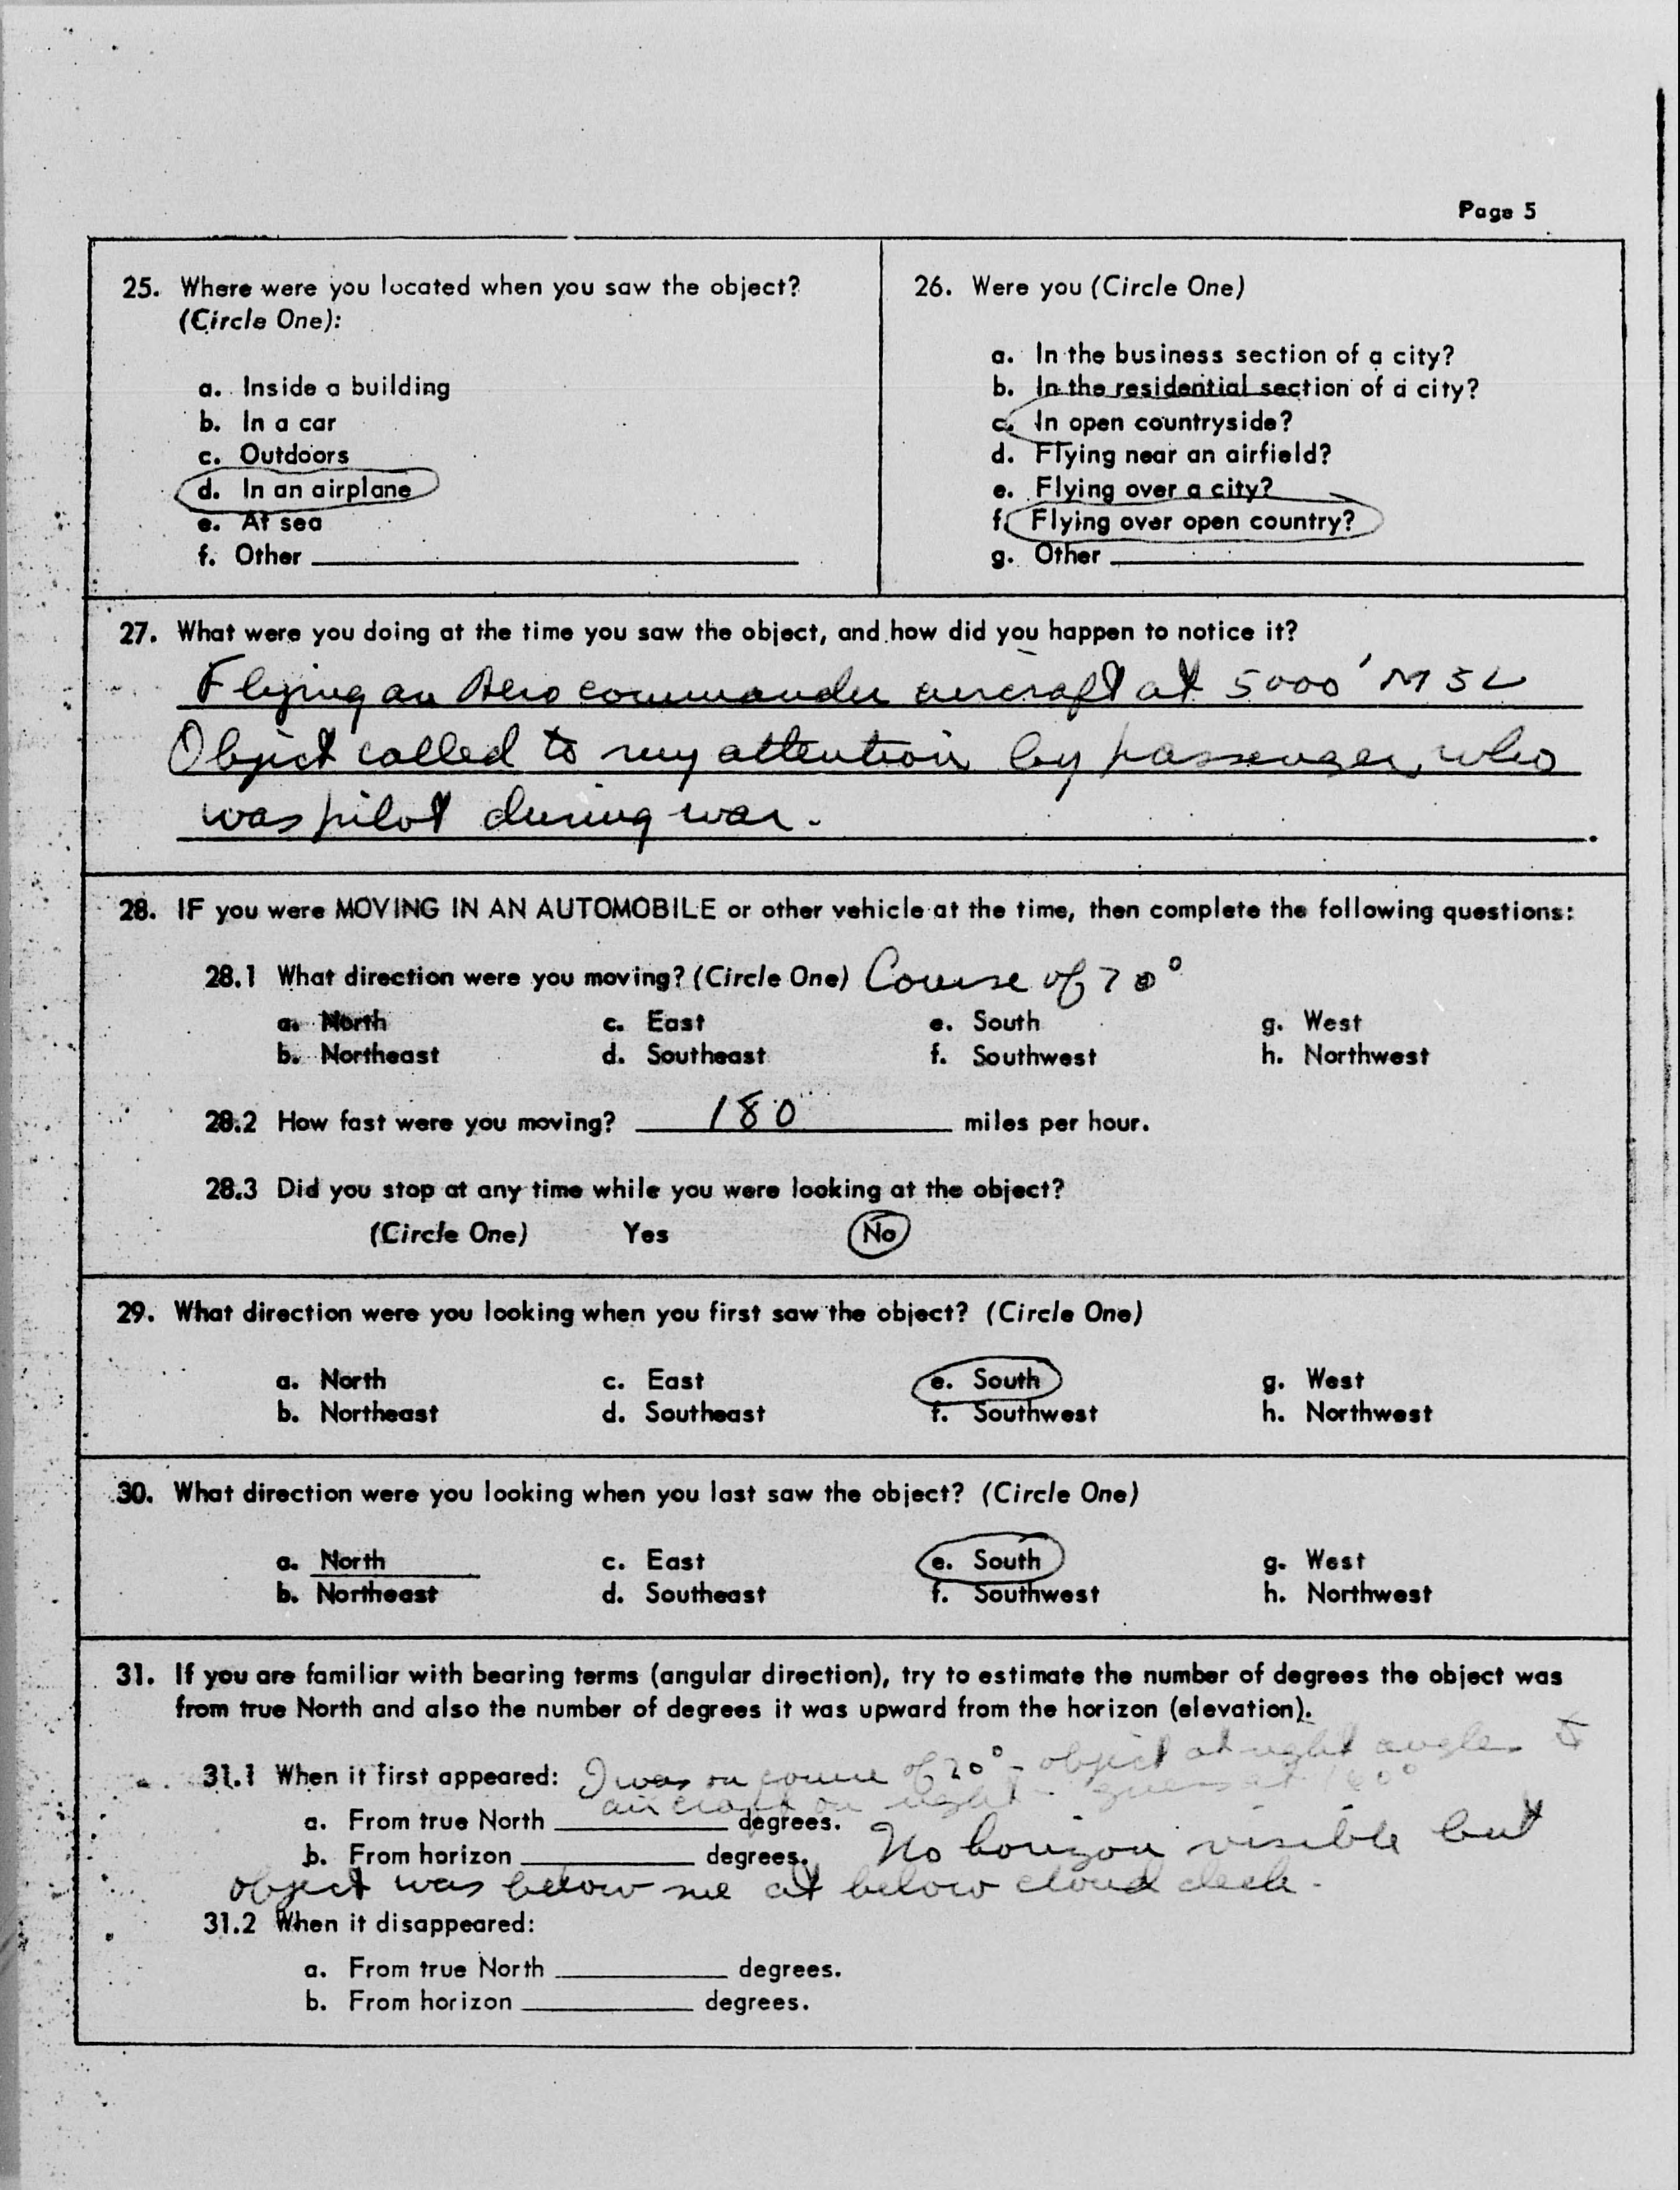 Page 5
25. Where were you located when you saw the object?
(Circle One):
a. Inside a building
b. In a car
c. Outdoors
d. In an airplane
e. At sea
f. Other
26. Were you (Circle One)
a. In the business section of a city?
b. In the residential section of a city?
c. In open countryside?
d. Flying near an airfield?
e. Flying over a city?
f. Flying over open country?
g. Other
27. What were you doing at the time you saw the object, and how did you happen to notice it?
Flying an Aero commander aircraft at 5000' MSL
Object called to my attention by passenger, who
was pilot during war.
28. IF you were MOVING IN AN AUTOMOBILE or other vehicle at the time, then complete the following questions:
28.1 What direction were you moving? (Circle One) Course of 70°
a. North c. East e. South g. West
b. Northeast d. Southeast f. Southwest h. Northwest
28.2 How fast were you moving? 180 miles per hour.
28.3 Did you stop at any time while you were looking at the object?
(Circle One) Yes No
29. What direction were you looking when you first saw the object? (Circle One)
a. North c. East e. South g. West
b. Northeast d. Southeast f. Southwest h. Northwest
30. What direction were you looking when you last saw the object? (Circle One)
a. North c. East e. South g. West
b. Northeast d. Southeast f. Southwest h. Northwest
31. If you are familiar with bearing terms (angular direction), try to estimate the number of degrees the object was
from true North and also the number of degrees it was upward from the horizon (elevation).
31.1 When it first appeared: I was on course of 70° - object at right angles to
aircraft on right - guess at
a. From true North degrees.
b. From horizon degrees. No horizon visible but
object was below me at below cloud deck.
31.2 When it disappeared:
a. From true North degrees.
b. From horizon degrees.